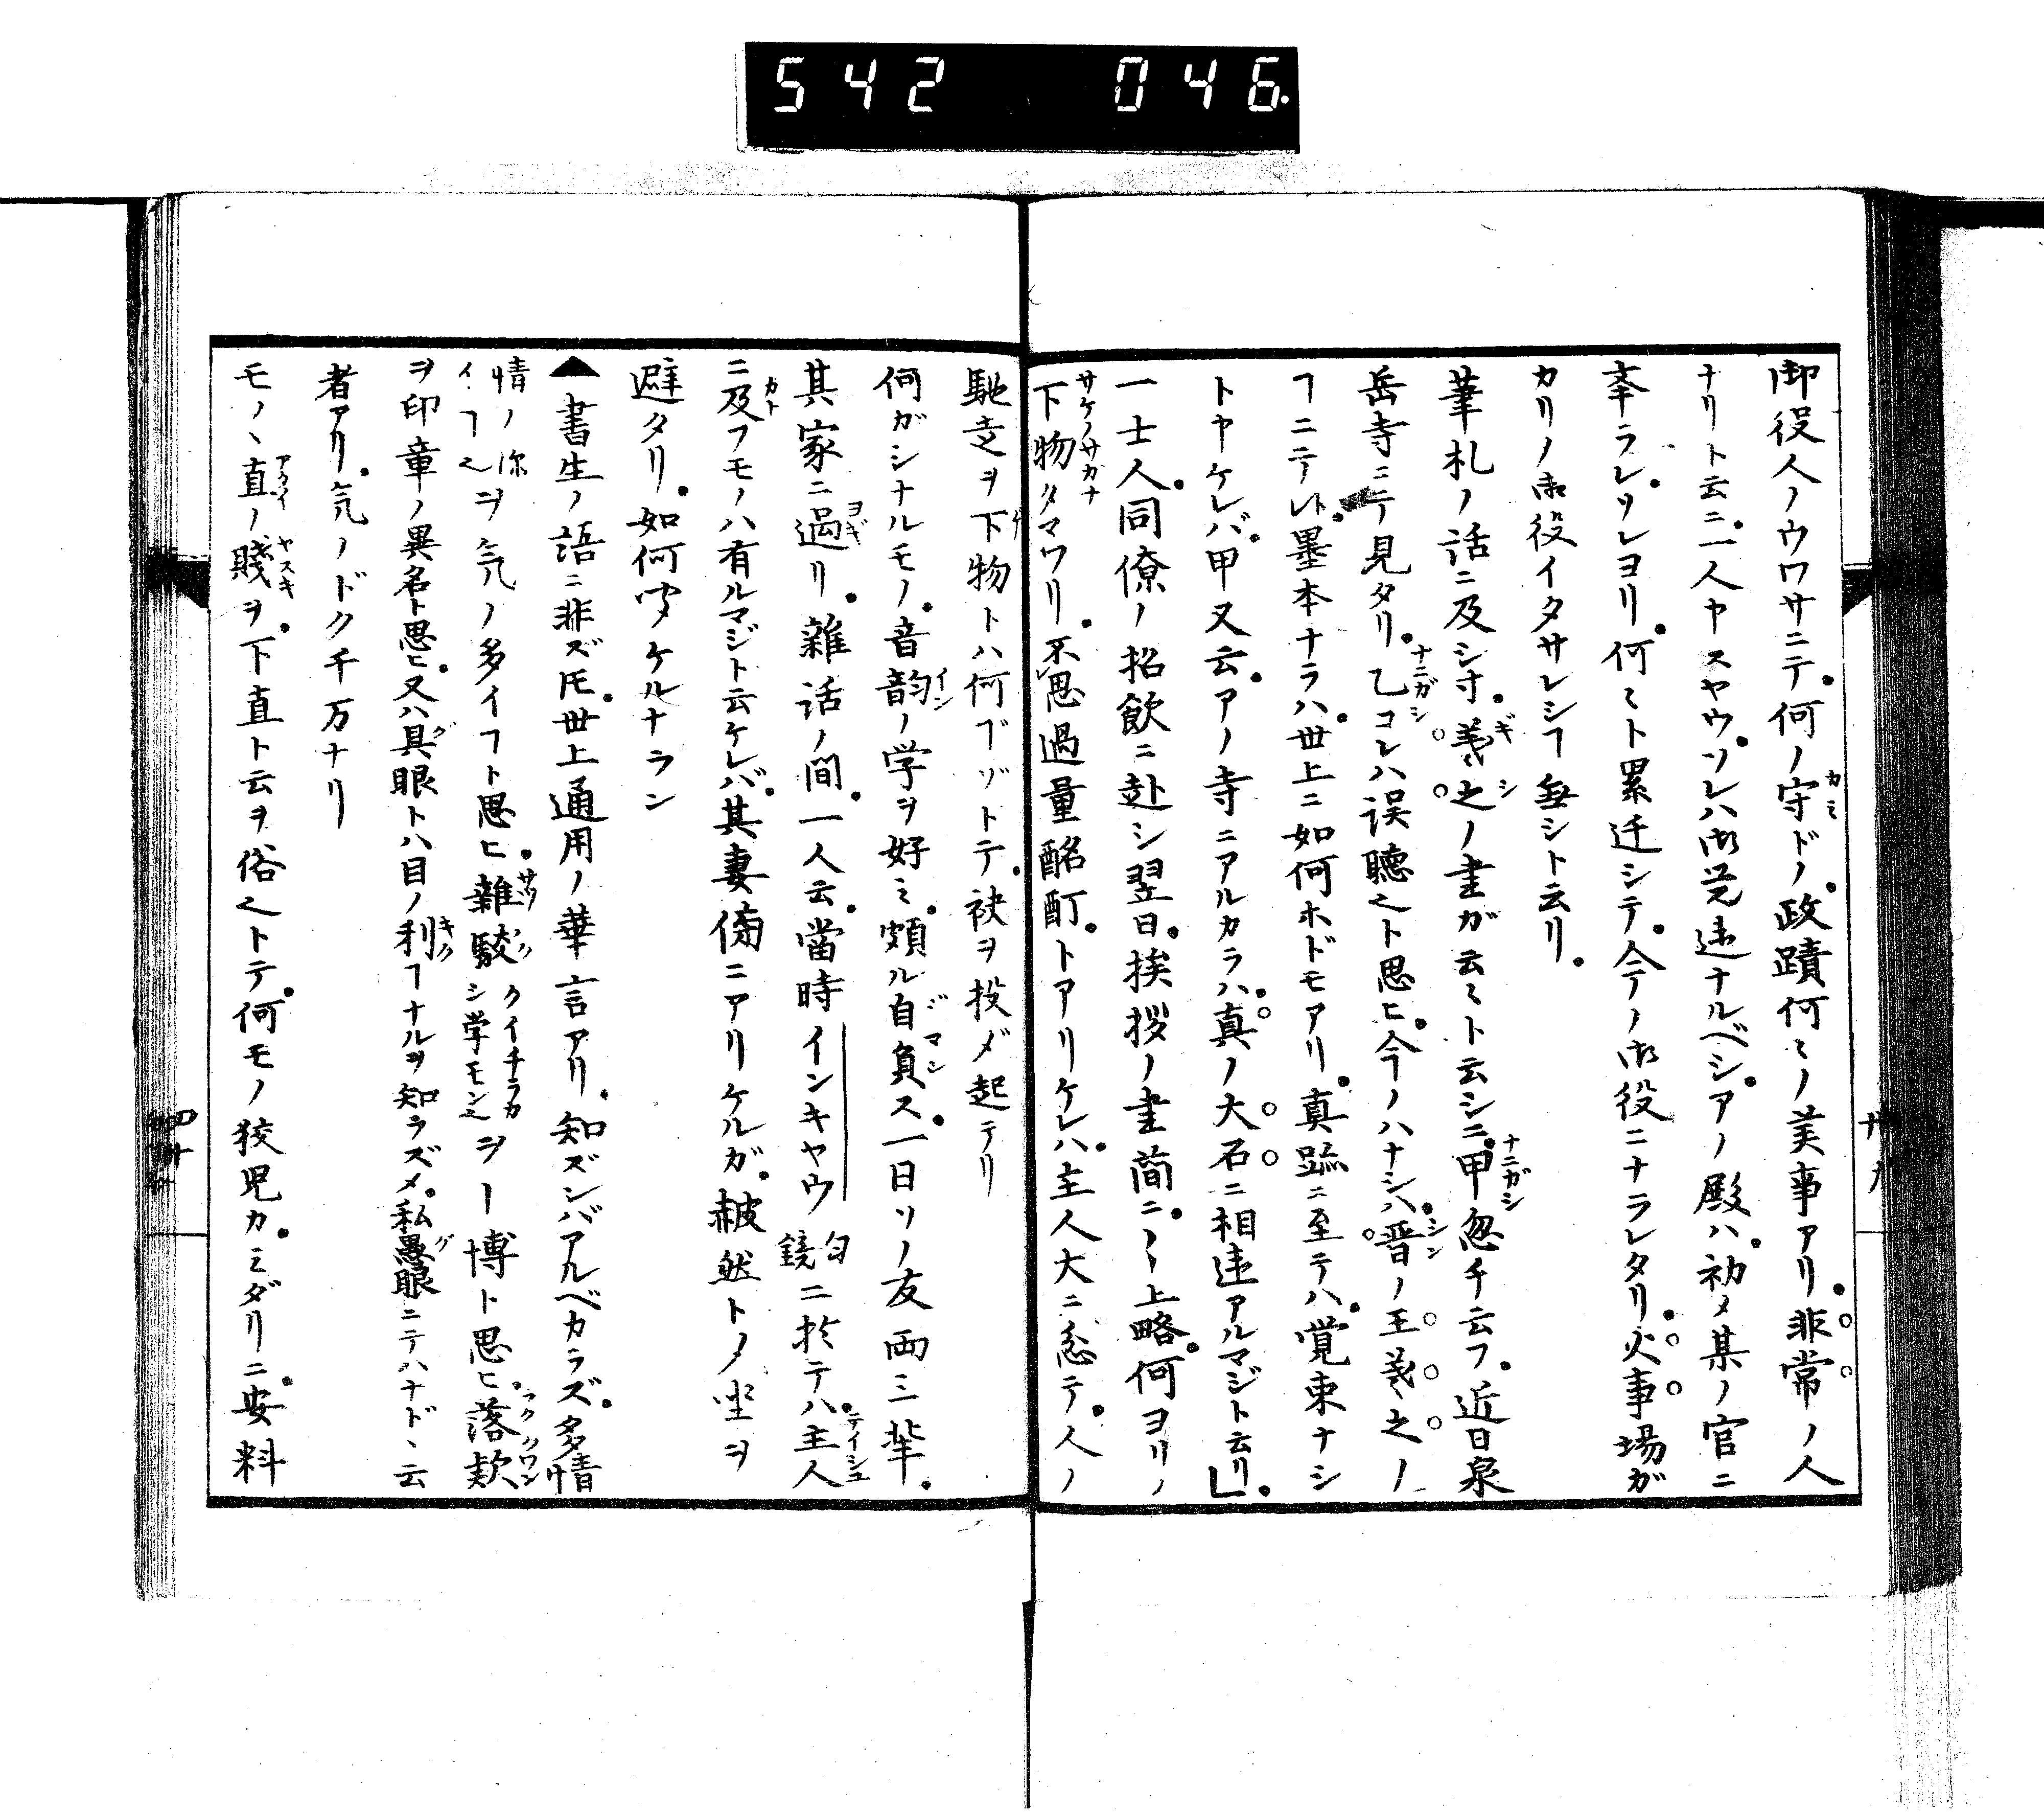 542 046
御役人ノウワサニテ。何ノ守ドノ。政蹟何〻ノ美事アリ。非常ノ人
ナリト云ニ。一人ヤスヤウ。ソレハ御覚違ナルベシ。アノ殿ハ。初メ某ノ官ニ
挙ラレ。ソレヨリ。何〻ト累迁シテ。今ノ御役ニナラレタリ。火事場ガ
カリノ御役イタサレシヿ無シト云リ。
筆札ノ話ニ及シ寸。羲之ノ書ガ云〻ト云シニ。甲忽チ云フ。近日泉
岳寺ニテ見タリ。乙コレハ誤聴之ト思ヒ。今ノハナシハ。晋ノ王羲之ノ
ヿニテ。墨本ナラハ。世上ニ如何ホドモアリ。真跡ニ至テハ。覚束ナシ
トヤケレバ。甲又云。アノ寺ニアルカラハ。真ノ大石ニ相違アルマジト云リ。」
一士人。同僚ノ招飲ニ赴シ翌日。挨拶ノ書簡ニ。〳〵上略。何ヨリノ
下物タマワリ。不思過量酩酊。トアリケレハ。主人大ニ忿テ。人ノ
馳走ヲ下物トハ何ヿゾトテ。袂ヲ投メ起テリ
何ガシナルモノ。音韵ノ学ヲ好ミ。頗ル自負ス。一日ソノ友両三輩。
其家ニ過リ。雜話ノ間。一人云。當時インキヤウ 匀鏡 ニ於テハ。主人
ニ及フモノハ有ルマジト云ケレバ。其妻傍ニアリケルガ。赧然トメ坐ヲ
避タリ。如何聞ケルナラン
▲書生ノ語ニ非ズ𪜈。世上通用ノ華言アリ。知ズンバアルベカラズ。多情
情ノ深イヿ之ヲ気ノ多イヿト思ヒ。雜駁クイチラカシ学モン之ヲー博ト思ヒ。落欵
ヲ印章ノ異名ト思ヒ。又ハ具眼トハ目ノ利ヿナルヲ知ラズメ。私愚眼ニテハナド、云
者アリ。気ノドク千万ナリ
モノヽ直ノ賤ヲ。下直ト云ヲ俗之トテ。何モノ狡児カ。ミダリニ。安料